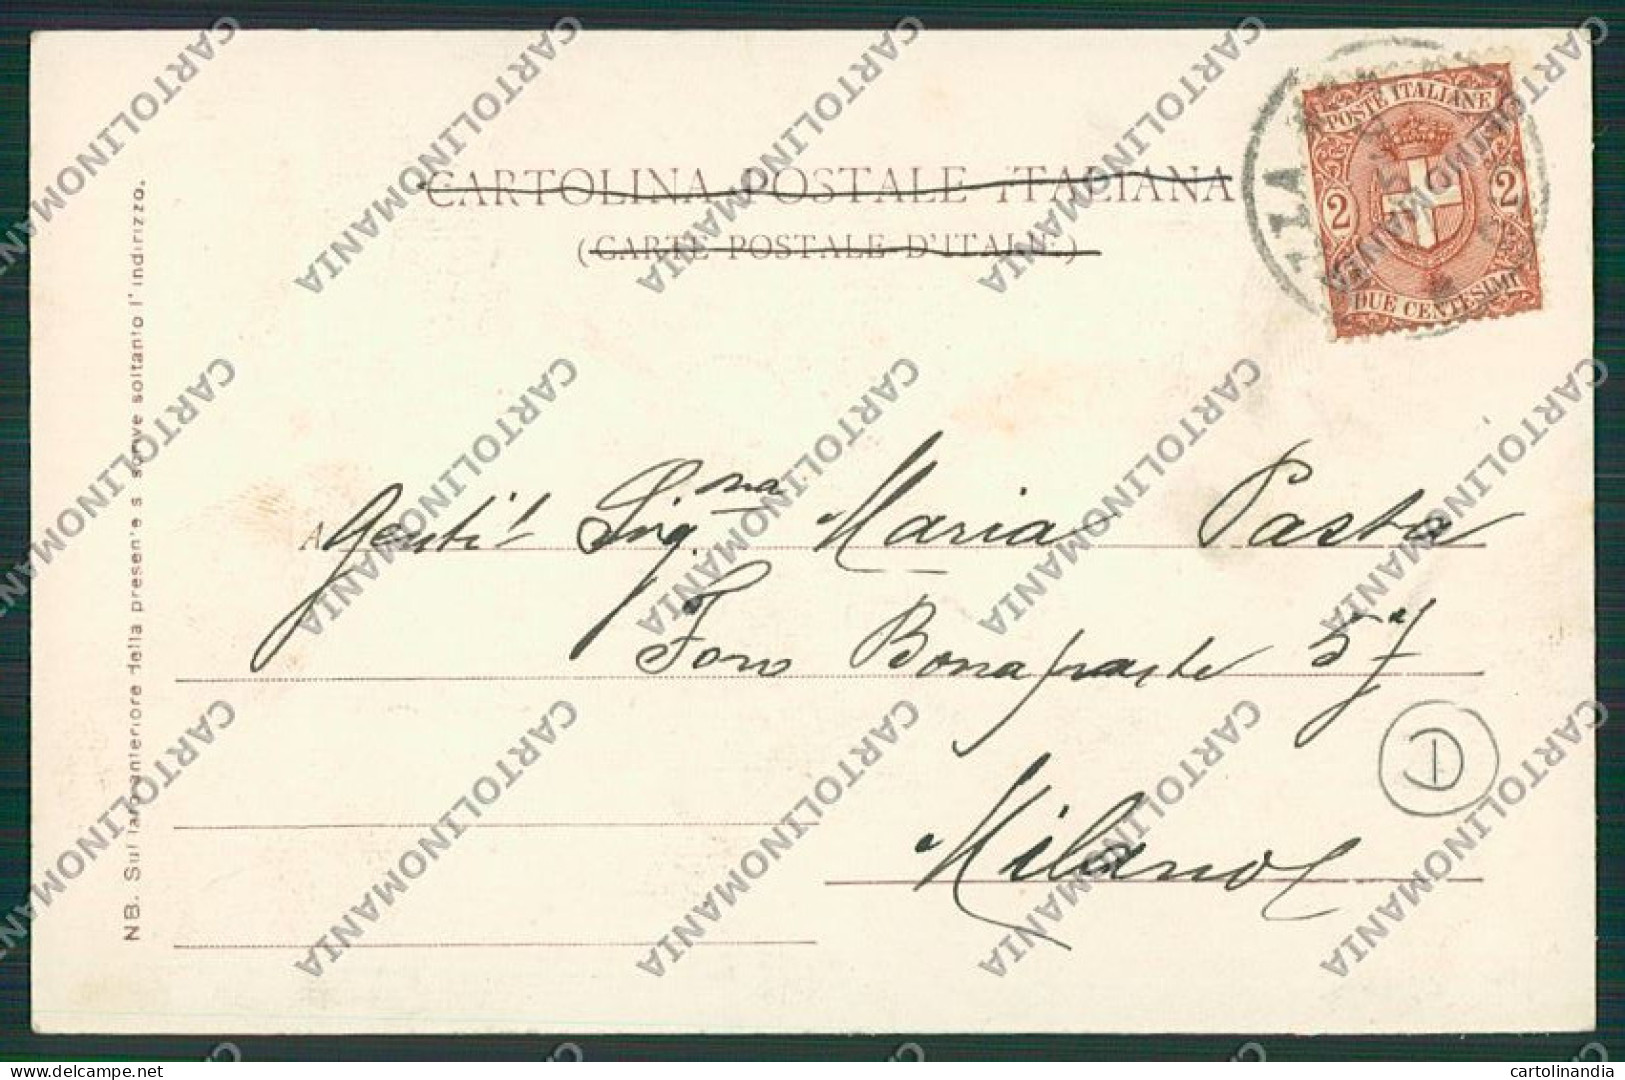 CARTOLINA POSTALE ITALIANA
(CARTE POSTALE D'ITALIE)
POSTE ITALIANE
2 2
DUE CENTESIMI
A Gentil Sig.na Maria Pasta
Foro Bonaparte 57
Milano
D
NB. Sul lato anteriore della presente si scrive soltanto l'indirizzo.
CARTOLINOMANIA
delcampe.net
cartolinandia